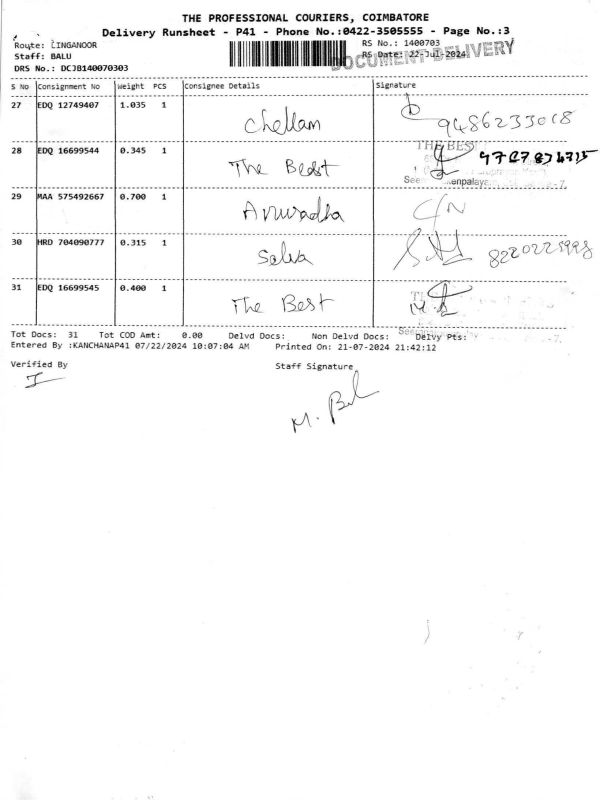 THE PROFESSIONAL COURIERS, COIMBATORE
Delivery Runsheet - P41 - Phone No.:0422-3505555 - Page No.:3
Route: LINGANOOR
RS No.: 1400703
DOCUMENT DELIVERY
Staff: BALU
RS Date: 22-Jul-2024
DRS No.: DCJB140070303
S No Consignment No Weight PCS Consignee Details Signature
27 EDQ 12749407 1.035 1
Chellam 9486233018
28 EDQ 16699544 0.345 1 THE BEST
The Best
29 MAA 575492667 0.700 1
Anuradha
30 HRD 704090777 0.315 1
Selva
31 EDQ 16699545 0.400 1
The Best
Tot Docs: 31 Tot COD Amt: 0.00 Delvd Docs: Non Delvd Docs: Delvy Pts:
Entered By :KANCHANAP41 07/22/2024 10:07:04 AM Printed On: 21-07-2024 21:42:12
Verified By Staff Signature
M. Bal